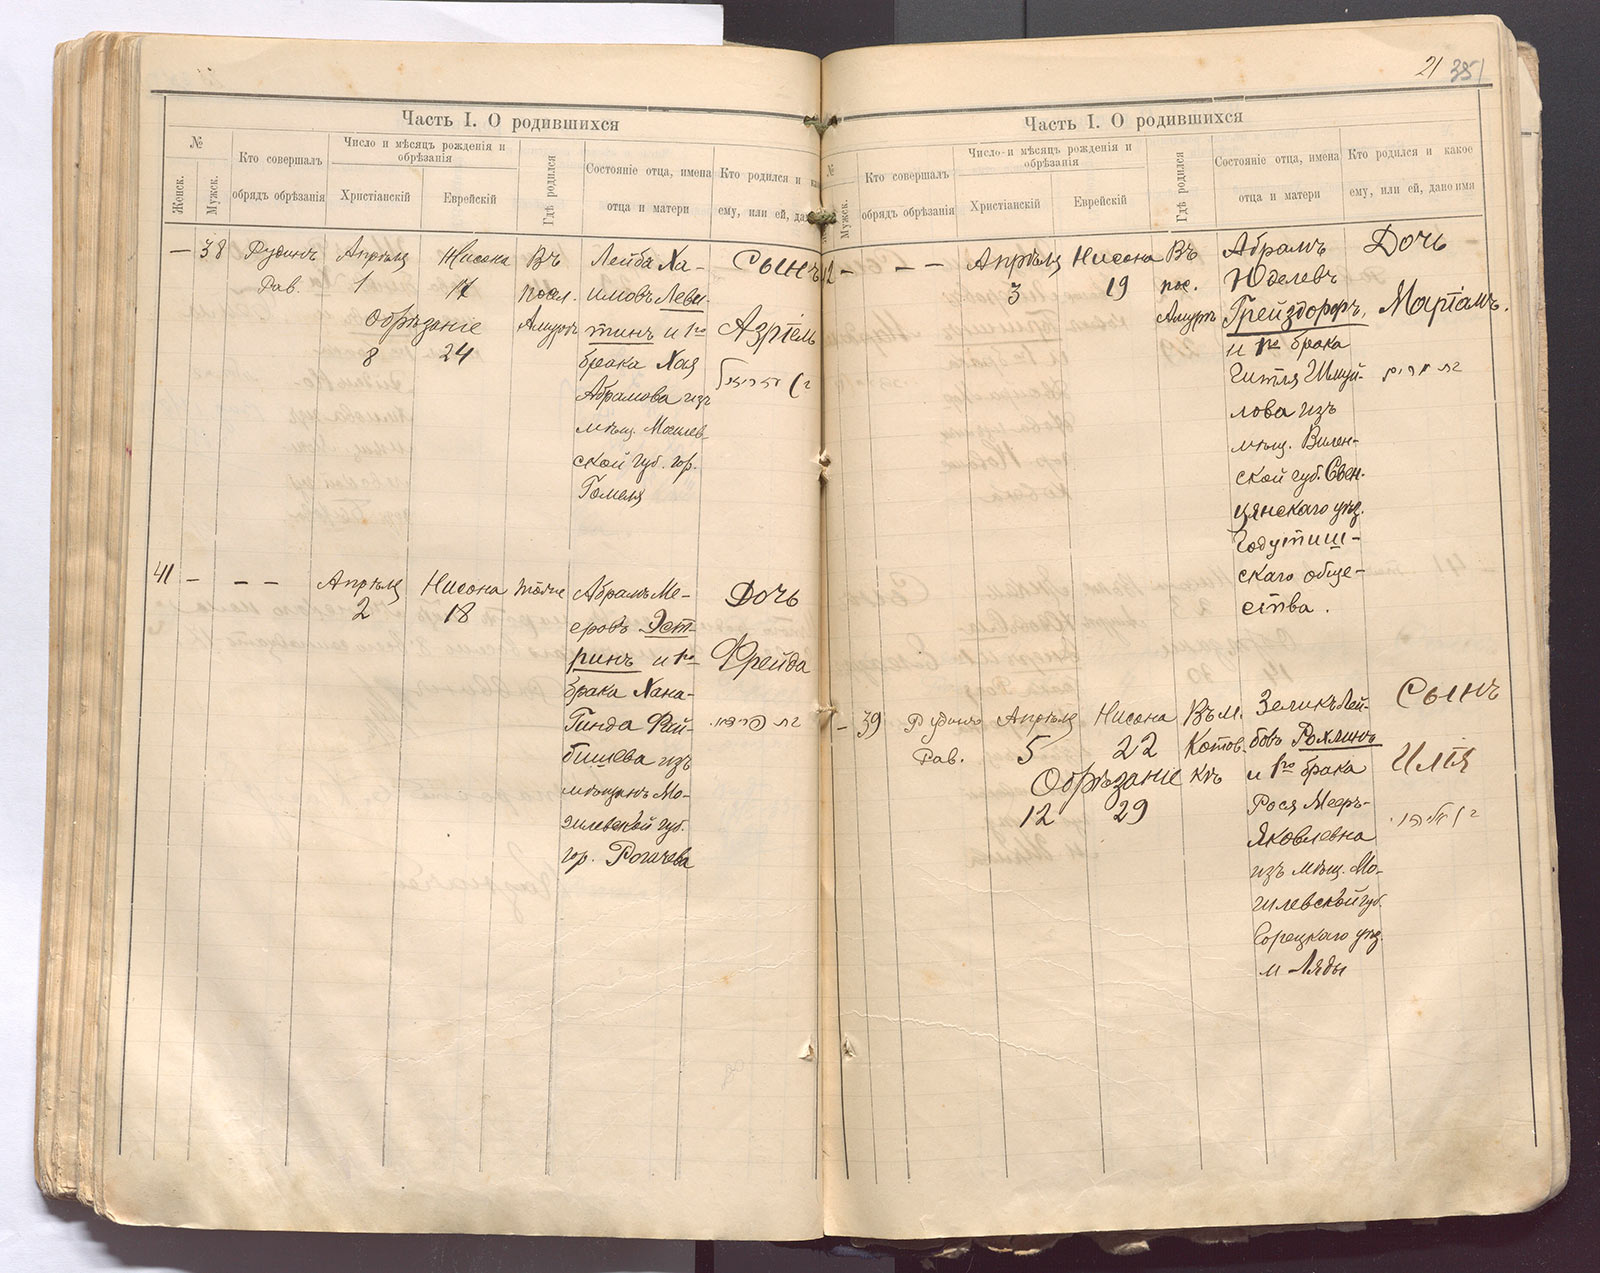 Часть I. О родившихся
№
Женск.
Мужск.
Кто совершалъ
обрядъ обрѣзанія
Число и мѣсяцъ рожденія и
обрѣзанія
Христіанскій
Еврейскій
Гдѣ родился
Состояніе отца, имена
отца и матери
Кто родился и как
ему, или ей, дан
— 38
Рудинъ
Рав.
Апрѣля
1
Нисона
17
Обрѣзаніе
8 24
Въ
посел.
Амуръ
Лейба Ха-
имовъ Леви-
тинъ и 1го
брака Хая
Абрамова изъ
мѣщ. Могилев-
ской губ. гор.
Гомеля
Сынъ
Азріель
41 — — —
Апрѣля
2
Нисона
18
тоже
Абрамъ Ме-
еровъ Эст-
ринъ и 1го
брака Хана-
Гинда Фай-
бишева изъ
мѣщанъ Мо-
гилевской губ.
гор. Рогачева
Дочь
Фрейда
21 35
Часть I. О родившихся
№
Мужск.
Кто совершалъ
обрядъ обрѣзанія
Число и мѣсяцъ рожденія и
обрѣзанія
Христіанскій
Еврейскій
Гдѣ родился
Состояніе отца, имена
отца и матери
Кто родился и какое
ему, или ей, дано имя
42 — — —
Апрѣля
3
Нисона
19
Въ
пос.
Амуръ
Абрамъ
Юделевъ
Грейздорфъ,
и 1го брака
Гитля Шмуй-
лова изъ
мѣщ. Вилен-
ской губ. Свен-
цянскаго уѣз.
Годутиш-
скаго обще-
ства.
Дочь
Маріамъ.
בת מרים
— 39
Рудинъ
Рав.
Апрѣля
5
Нисона
22
Обрѣзаніе
12 29
Въ м.
Котов-
кѣ
Зеликъ Лей-
бовъ Рохлинъ
и 1го брака
Рося Меръ-
Яковлевна
изъ мѣщ. Мо-
гилевской губ.
Горецкаго уѣз.
м Ляды
Сынъ
Илія